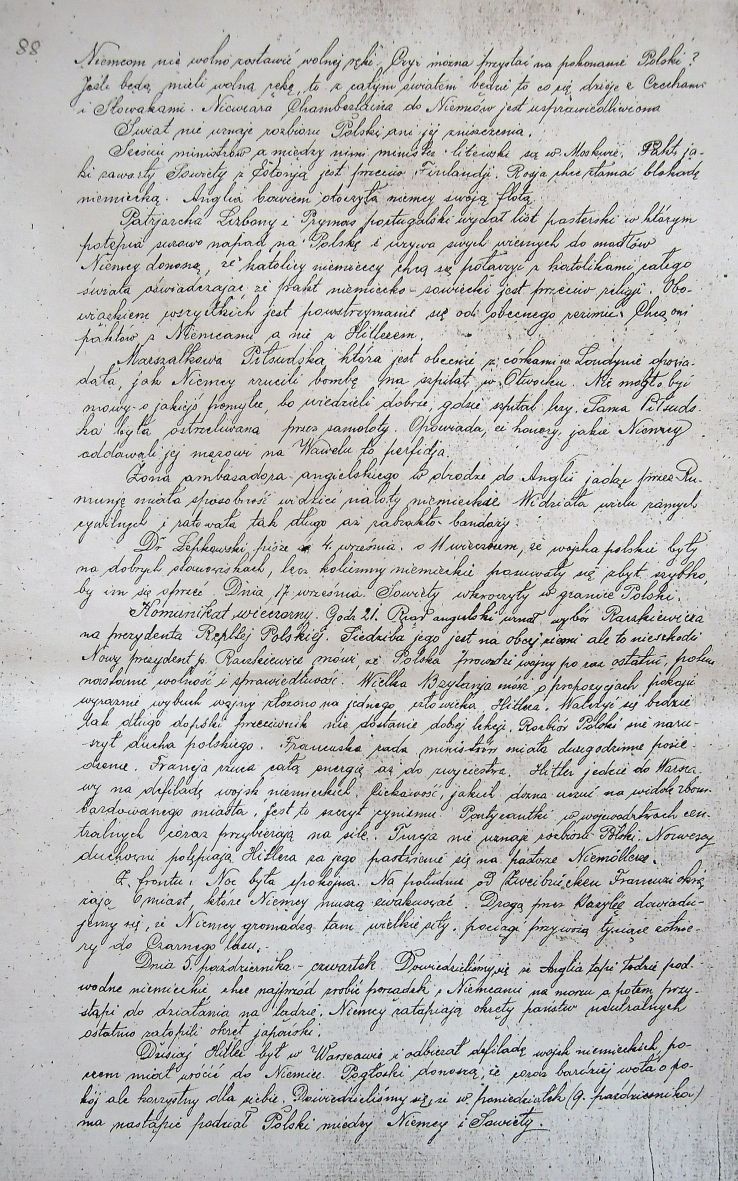 88
Niemcom nie wolno zostawić wolnej ręki. Czyż można przystać na pokonanie Polski?
Jeśli będą mieli wolną rękę, to z całym światem będzie to co się dzieje z Czechami
i Słowakami. Niewiara Chamberlaina do Niemców jest usprawiedliwiona
Świat nie uznaje rozbioru Polski, ani jej zniszczenia.
Sześciu ministrów a między nimi minister litewski są w Moskwie. Pakt ja-
ki zawarły Sowiety z Estonją jest przeciw Finlandji. Rosja chce złamać blokadę
niemiecką. Anglia bowiem otoczyła niemcy swoją flotą.
Patrjarcha Lizbony i Prymas portugalski wydał list pasterski w którym
potępia surowo napad na Polskę i wzywa swych wiernych do modłów
Niemcy donoszą, że katolicy niemieccy chcą się połączyć z katolikami całego
świata oświadczając że pakt niemiecko-sowiecki jest przeciw religji. Obo-
wiązkiem wszystkich jest powstrzymanie się od obecnego reżimu. Chcą oni
paktów z Niemcami a nie z Hitlerem.
Marszałkowa Piłsudska, która jest obecnie z córkami w Londynie opowia-
dała, jak Niemcy rzucili bombę na szpital w Otwocku. Nie mogło być
mowy o jakiejś pomyłce, bo wiedzieli dobrze gdzie szpital leży. Sama Piłsuds-
ka była ostrzeliwana przez samoloty. Opowiada, że honory jakie Niemcy
oddawali jej mężowi na Wawelu to perfidja.
Żona ambasadora angielskiego w drodze do Anglii jadąc przez Ru-
munję miała sposobność widzieć naloty niemieckie. Widziała wielu rannych
cywilnych i ratowała tak długo aż zabrakło bandaży.
Dr Łepkowski pisze 4. września o 11 wieczorem, że wojska polskie były
na dobrych stanowiskach, lecz kolumny niemieckie posuwały się zbyt szybko,
by im się oprzeć. Dnia 17 września Sowiety wkroczyły w granice Polski.
Komunikat wieczorny. Godz 21. Rząd angielski uznał wybór Raczkiewicza
na prezydenta Rzplitej Polskiej. Siedziba jego jest na obcej ziemi ale to nie szkodzi
Nowy prezydent p. Raczkiewicz mówi, że Polska prowadzi wojnę po raz ostatni, potem
nastanie wolność i sprawiedliwość. Wielka Brytanja mówi o propozycjach pokoju
wyraźnie wybuch wojny złożono na jednego człowieka Hitlera. Walczyć się będzie
tak długo dopóki przeciwnik nie dostanie dobrej lekcji. Rozbiór Polski nie naru-
szył ducha polskiego. Francuska rada ministrów miała dwugodzinne posie-
dzenie. Francja rzuca całą energię aż do zwycięstwa. Hitler jedzie do Warsza-
wy na defiladę wojsk niemieckich. Ciekawość, jakich dozna uczuć na widok zbom-
bardowanego miasta, jest to szczyt cynizmu. Partyzantki w województwach cen-
tralnych coraz przybierają na sile. Turcja nie uznaje rozbioru Polski. Norwescy
duchowni potępiają Hitlera za jego pastwienie się na pastorze Niemöllerze.
Z frontu: Noc była spokojna. Na południe od Zweibrücken Francuzi okrą-
żają 6 miast, które Niemcy muszą ewakuować. Drogą przez Bazyleę dowiadu-
jemy się, że Niemcy gromadzą tam wielkie siły. pociągi przywożą tysiące żołnie-
rzy do Czarnego lasu.
Dnia 5. października - czwartek. Dowiedzieliśmy się że Anglia tępi łodzie pod-
wodne niemieckie chce najprzód zrobić porządek z Niemcami na morzu a potem przy-
stąpi do działania na lądzie. Niemcy zatapiają okręty państw neutralnych
ostatnio zatopili okręt japoński.
Dzisiaj Hitler był w Warszawie i odbierał defiladę wojsk niemieckich, po-
czem miał wrócić do Niemiec. Pogłoski donoszą, że coraz bardziej woła o po-
kój ale korzystny dla siebie. Dowiedzieliśmy się, że w poniedziałek (9. października)
ma nastąpić podział Polski między Niemcy i Sowiety.